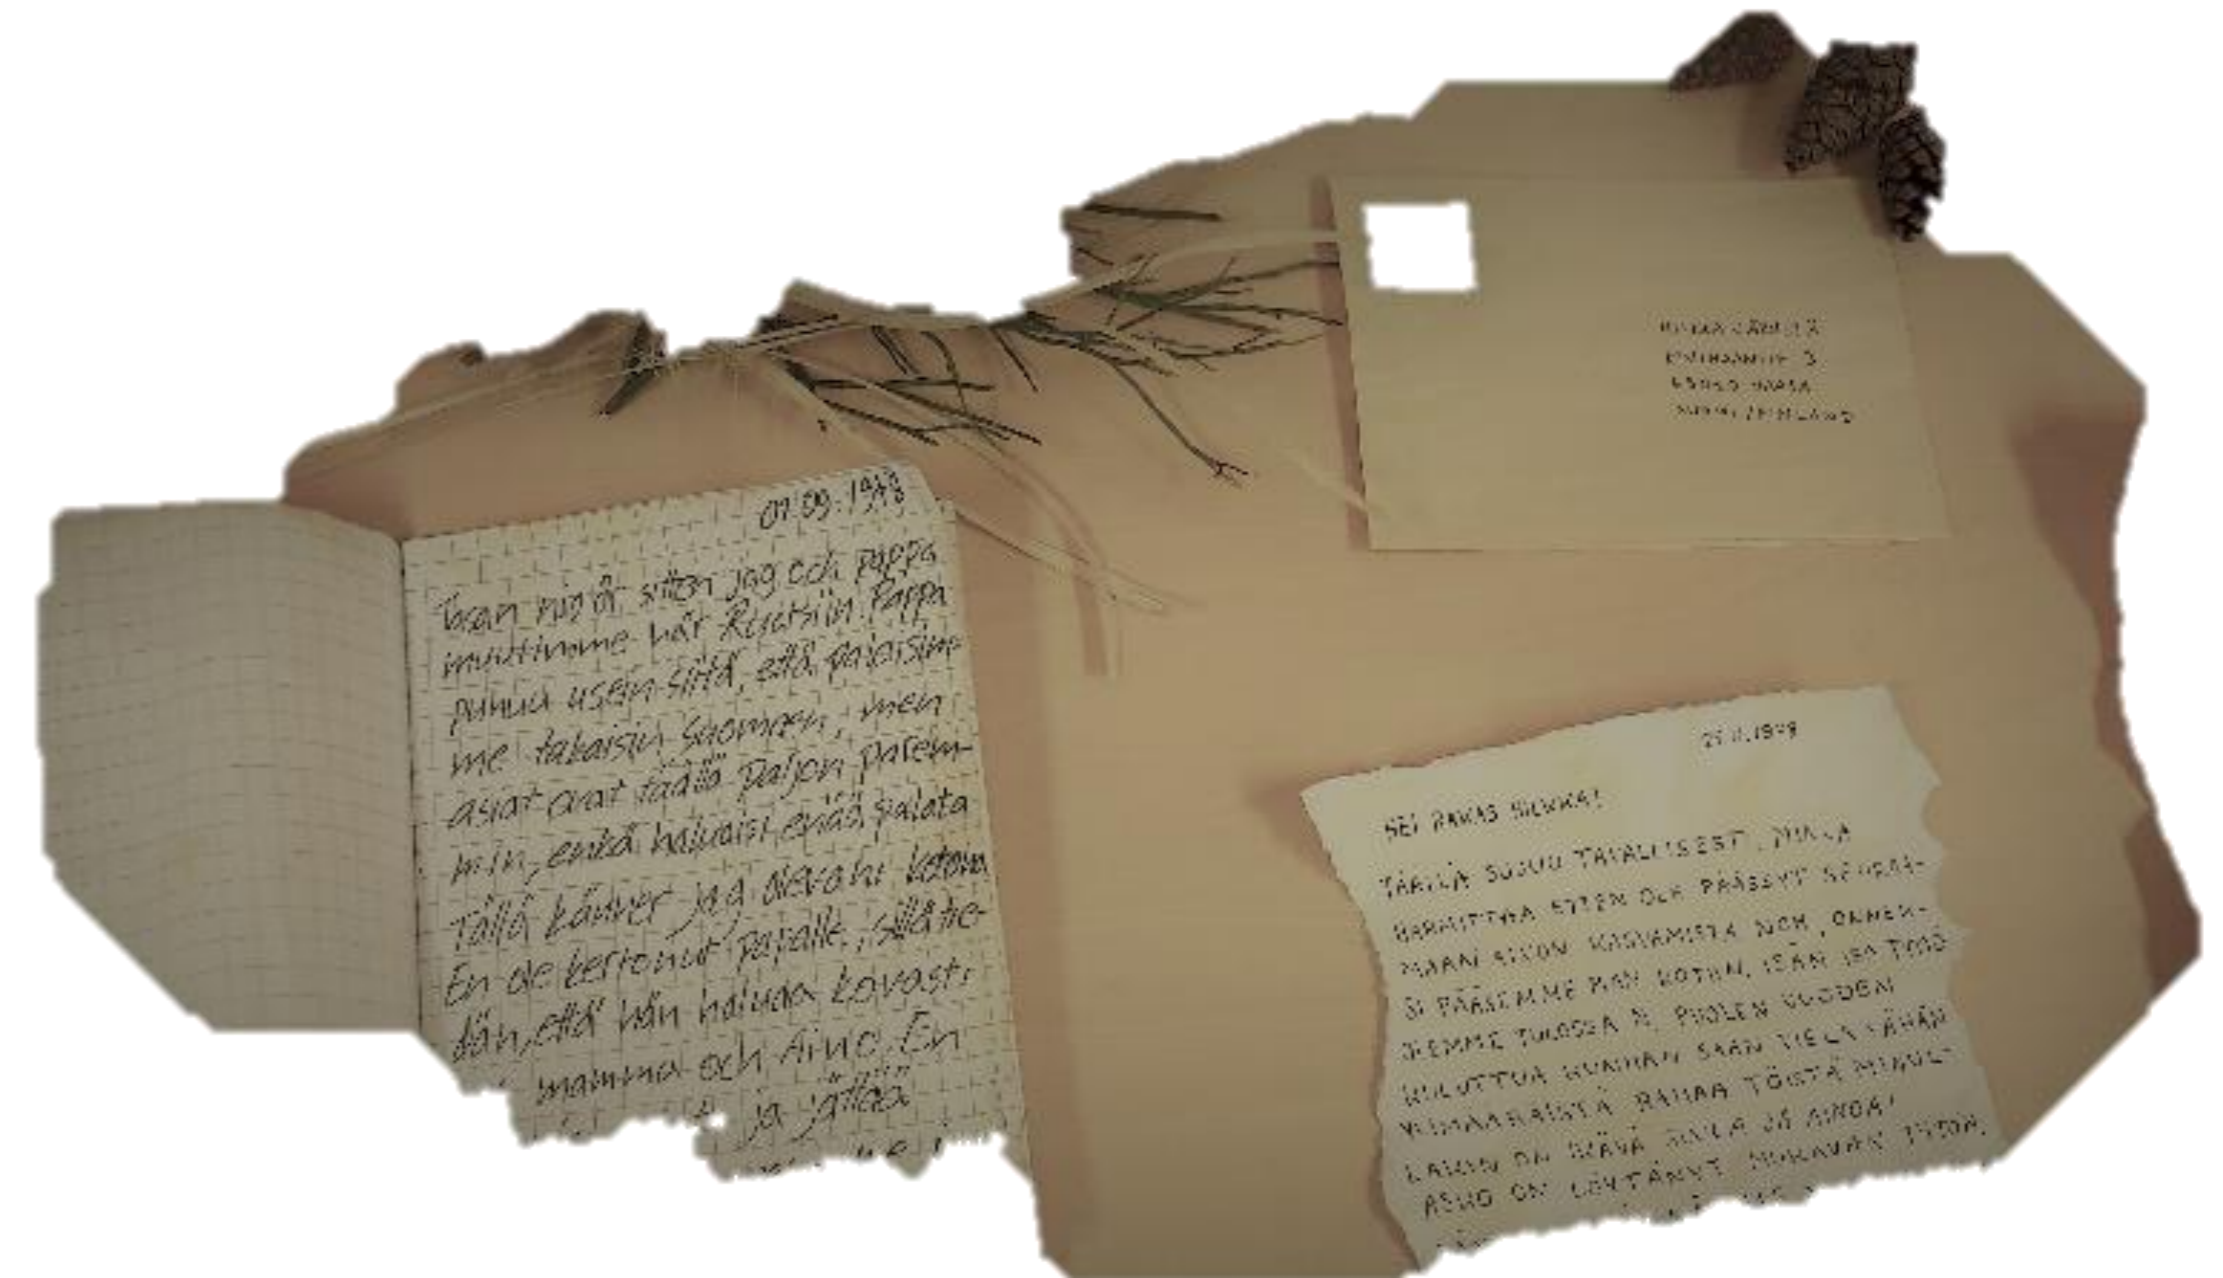 07.09.1978
Tasan nio år sitten jag och pappa
muutimme här Ruotsiin. Pappa
puhuu usein siitä, että palaisim-
me takaisin Suomeen, men
asiat ovat täällä paljon parem-
min, enkä haluaisi enää palata
Tällä känner jag olevani kotona
En ole kertonut papalle, sillä tie-
dän, että hän haluaa kovasti
mamma och Aino. En
ja jättää
3
SUOMI/FINLAND
1978
HEI RAKAS HILKKA!
TÄÄLLÄ SUJUU TAVALLISESTI.
HARMITTAA ETTEN OLE PÄÄSSYT SEURAA-
MAAN AINON KASVAMISTA. NOH, ONNEK-
SI PÄÄSEMME PIAN KOTIIN.
OLEMME TULOSSA N. PUOLEN VUODEN
KULUTTUA KUNHAN SAAN VIELÄ VÄHÄN
YLIMÄÄRÄISTÄ RAHAA TÖISTÄ. MINUL-
LAKIN ON IKÄVÄ SINUA JA AINOA!
ON LÖYTÄNYT MUKAVAN TYTÖN,